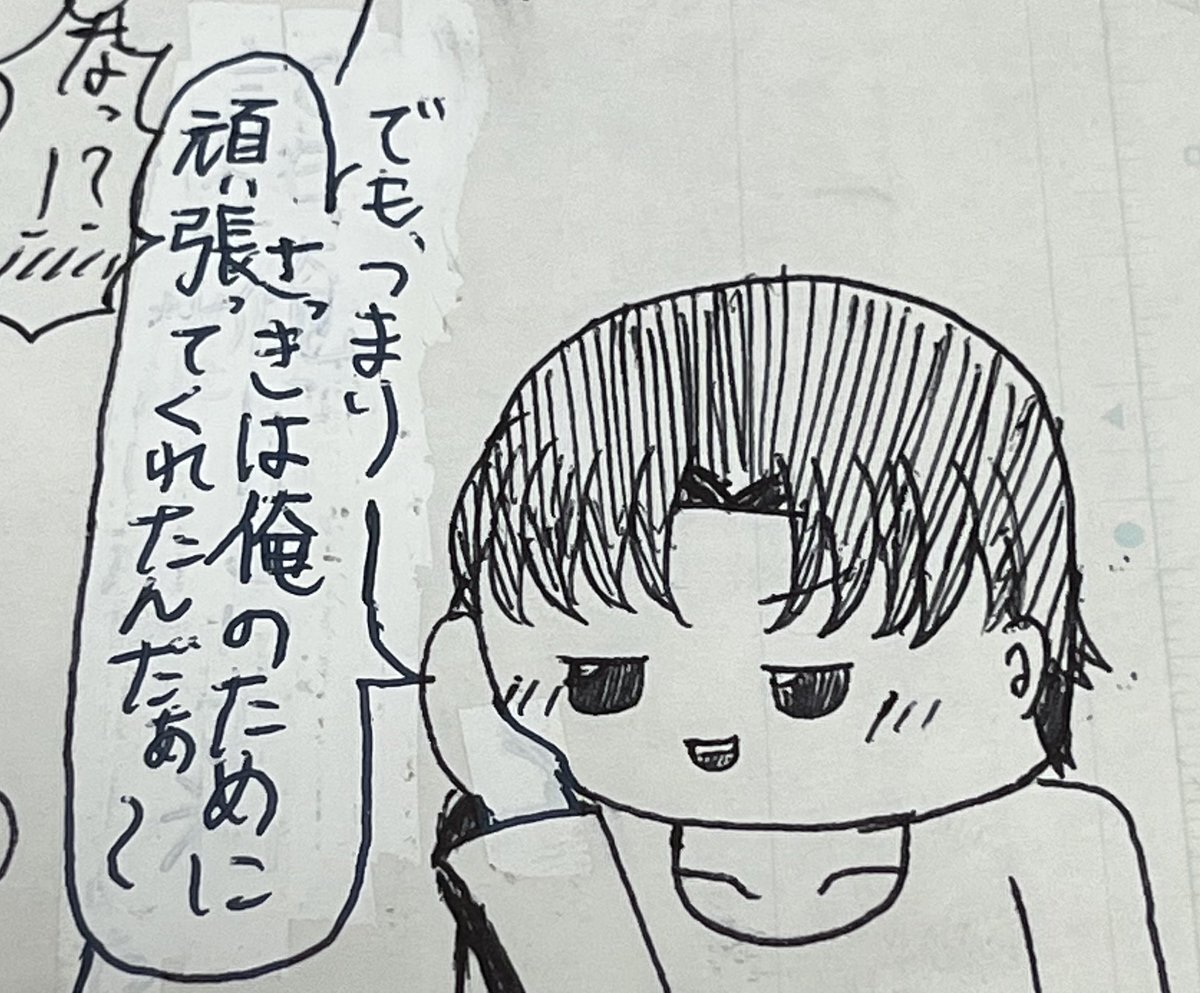 でも、つまり
さっきは俺のために
頑張ってくれたんだぁ〜
なっ!?